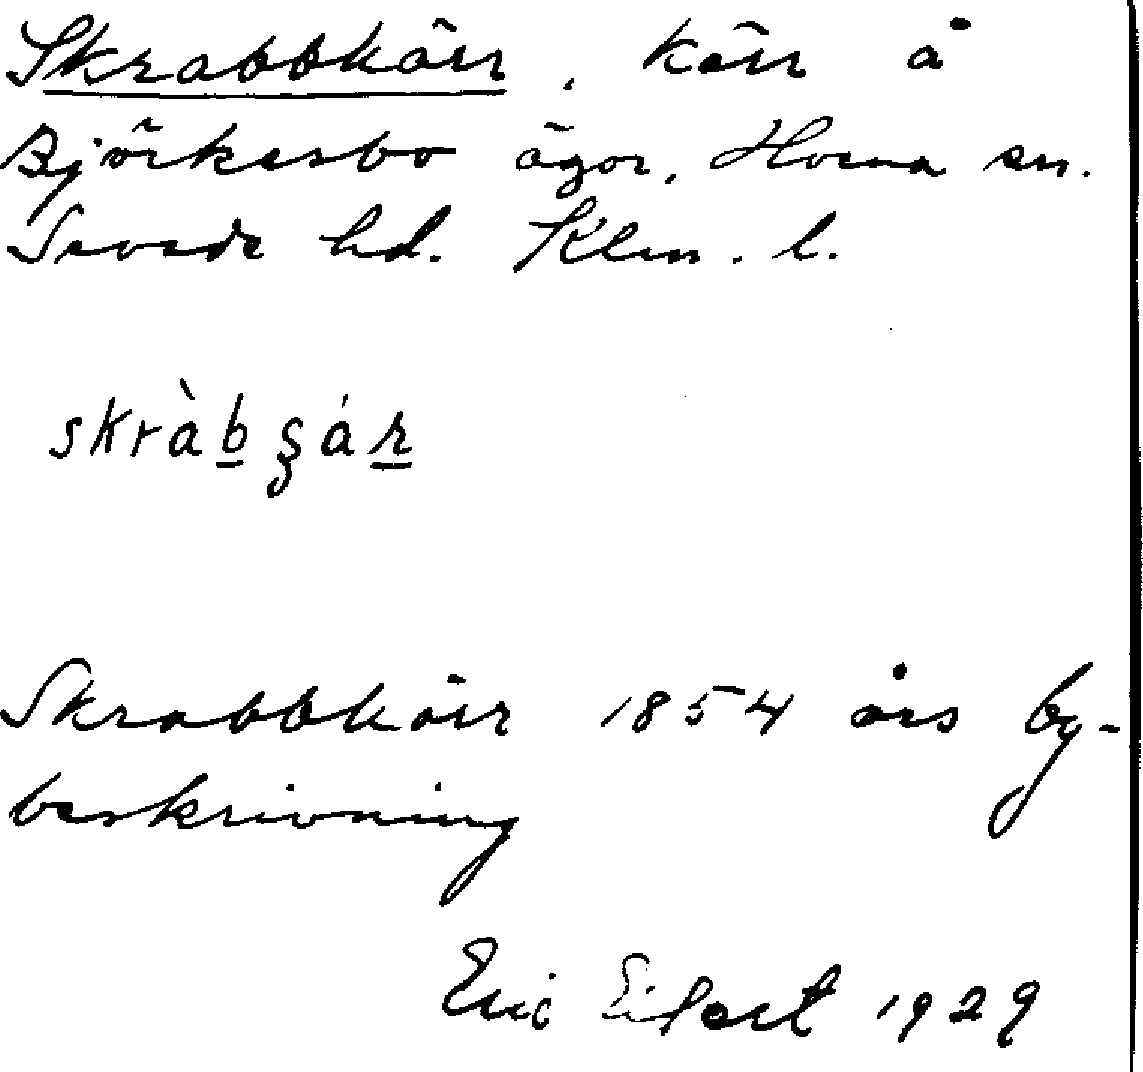 Skrabbkärr, kärr å
Björkesbo ägor, Horna sn.
Sevede hd. Klm. l.
skràb̲ ʂár̲
Skrabbkärr 1854 års by-
beskrivning
Eric 1929